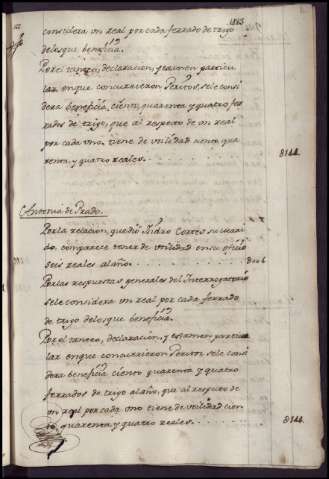 1863
considera un real por cada ferrado de trigo
delosque beneficia.
Por el tanteo, declaracion, y examen particu
lar enque concurrieron Peritos, sele consi
dera beneficia, ciento, quarenta y quatro fer
rados de trigo, que al respecto de un real
por cada uno, tiene de utilidad ciento qua
renta, y quatro reales.
8144
Antonia de Prado.
Por la relacion, que dió Isidro Cortes su mari
do, comparece tener de utilidad en su oficio
seis reales al año.
8006
Por las respuestas generales del Interrogatorio
sele considera un real por cada ferrado
de trigo delosque beneficia.
Por el tanteo, declaracion, y examen particu
lar enque concurrieron Peritos sele consi
dera beneficia ciento quarenta y quatro
ferrados de trigo al año, que al respecto de
un real por cada uno tiene de utilidad cien
to quarenta y quatro reales.
8144